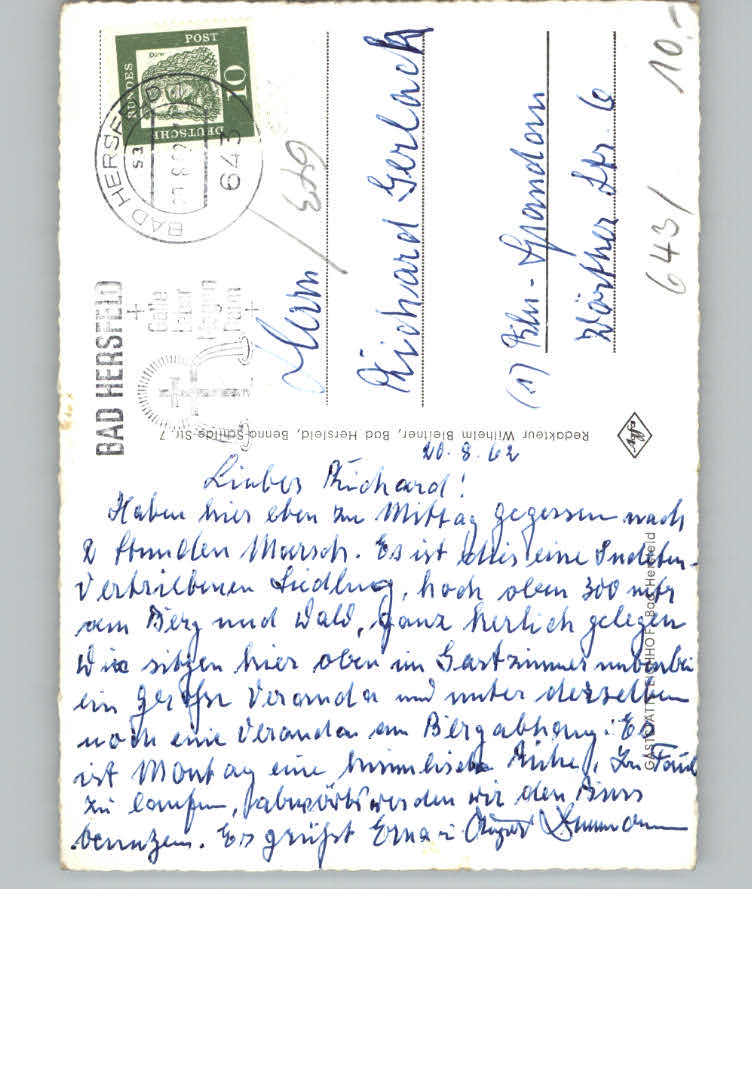 BUNDES
POST
DEUTSCHE
10
BAD HERSFELD
643
BAD HERSFELD
10.-
643/
Herrn
Richard Gerlach
(1) Bln-Spandau
Wörther Str. 6
Redakteur Wilhelm Bleitner, Bad Hersfeld, Benno-Schilde-Str. 7
Agfa
20.8.62
Lieber Richard!
Haben hier eben zu Mittag gegessen nach
2 Stunden Marsch. Es ist dies eine Sudeten-
Vertriebenen Siedlung, hoch oben 300 mtr
am Berg und Wald, ganz herlich gelegen
Wir sitzen hier oben im Gastzimmer nebenbei
ein große Veranda und unter derselben
noch eine Veranda am Bergabhang. Es
ist Montag eine himmlische Ruhe. Zu Faul
zu laufen, abwärts werden wir den Bus
benuzen. Es grüßt Erna u. August
GASTSTÄTTE Bad Hersfeld